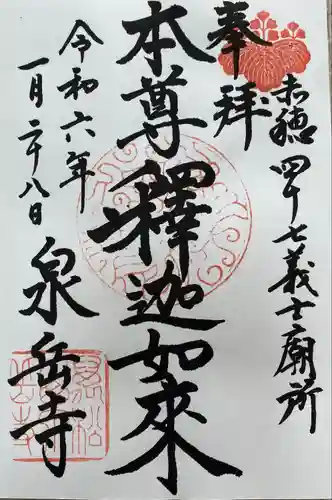 奉拝
赤穂四十七義士廟所
本尊釋迦如来
令和六年
一月二十八日
泉岳寺